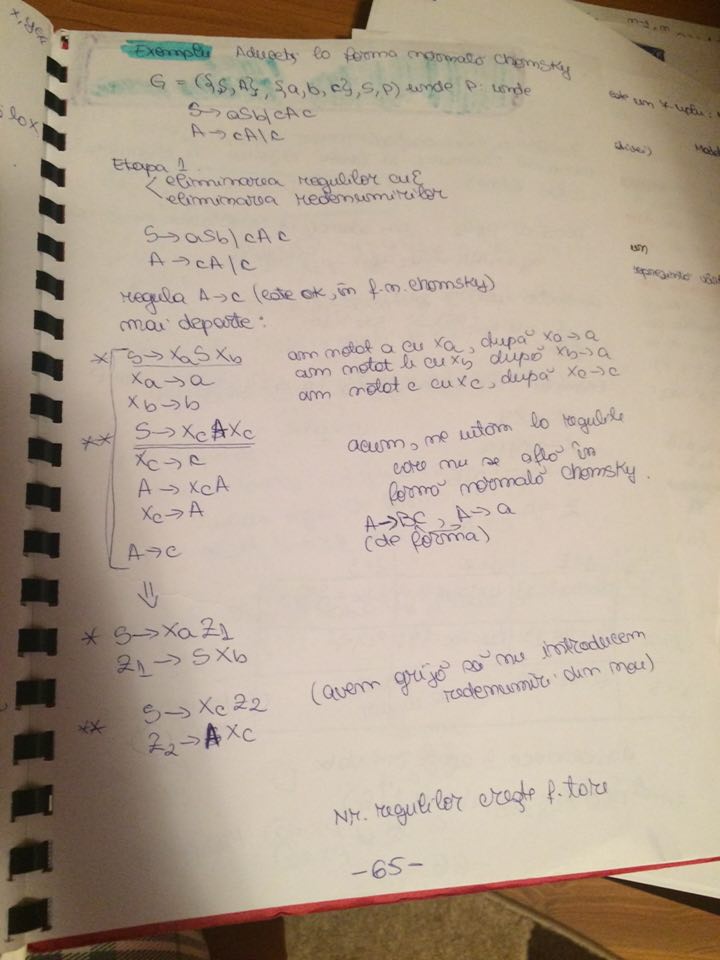 x, yεk
Exemplu Aduceți la forma normală Chomsky
G = ({S, A}, {a, b, c}, S, P) unde P: unde
S → aSb | cAc
A → cA | c
Etapa 1
eliminarea regulilor cu ε
eliminarea redenumirilor
S → aSb | cAc
A → cA | c
regula A → c (este ok, în f.n. Chomsky)
mai departe:
* S → XaSXb am notat a cu Xa, după Xa → a
Xa → a am notat b cu Xb, după Xb → a
Xb → b am notat c cu Xc, după Xc → c
** S → XcAXc acum, ne uităm la regulile
Xc → c care nu se află în
A → XcA formă normală Chomsky.
Xc → A A → BC, A → a
A → c (de forma)
⇓
* S → XaZ1
Z1 → SXb (avem grijă să nu introducem
S → XcZ2 redenumiri din nou)
** Z2 → AXc
Nr. regulilor crește f. tare
-65-
este un
un